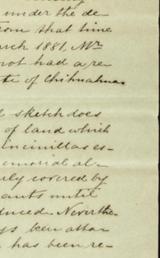 under the de-
from that time
March 1881, Mr
not had a re-
te of Chihuahua
sketch does
of land which
uncimillas es-
emorial al-
ly covered by
cants until
uced. Neverthe-
ys been atta-
has been re-